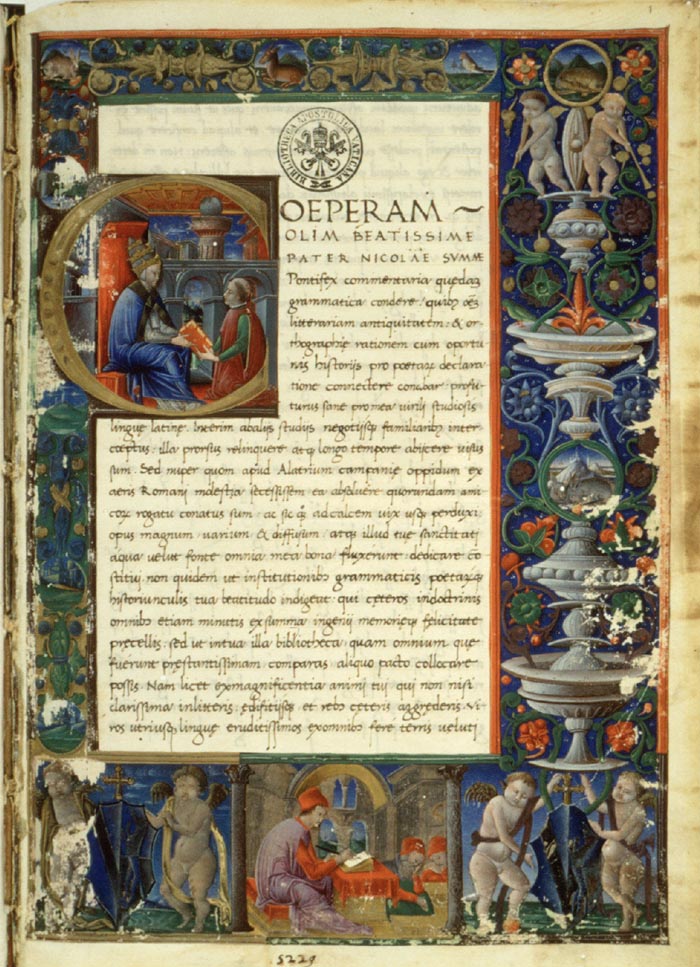 BIBLIOTHECA APOSTOLICA VATICANA
COEPERAM
OLIM BEATISSIME
PATER NICOLAE SVMME
Pontifex commentaria quędaʒ
grammatica condere, quibꝫ oēʒ
litterariam antiquitatem: & or-
thographię rationem cum oportu
nis historijs pro poetarꝫ declara
tione connectere conabar profu
turus sane pro mea virili studiosis
linguę latinę. Interim ab alijs studijs negotijsqꝫ familiaribꝫ inter
cęptus. illa prorsus relinquere atqꝫ longo tempore abijcere visus
sum. Sed nuper quom apud Alatrium campanię oppidum ex
aeris Romani molestia secessissem ea absoluere quorundam ami
corꝫ rogatu conatus sum. ac sic qꝫ ad calcem uix usqꝫ perduxi:
opus magnum, uarium, & diffusum. atqꝫ illud tuę sanctitati
a qua velut fonte omnia mea bona fluxerunt: dedicare cō
stitui, non quidem ut institutionibꝫ grammaticis poetarꝫqꝫ
historiunculis tua beatitudo indigeat: qui cęteros in doctrinis
omnibꝫ etiam minutis ex summa ingenij memorięqꝫ felicitate
pręcellis. sed ut in tua illa bibliotheca: quam omnium quę
fuerunt pręstantissimam comparas, aliquo pacto collocare
possis. Nam licet ex magnificentia animi tui qui non nisi
clarissima in litteris, ędifitijsqꝫ et rebꝫ cęteris aggrederis. vi
ros utriusqꝫ linguę eruditissimos ex omnibꝫ fere terris velutj
5229